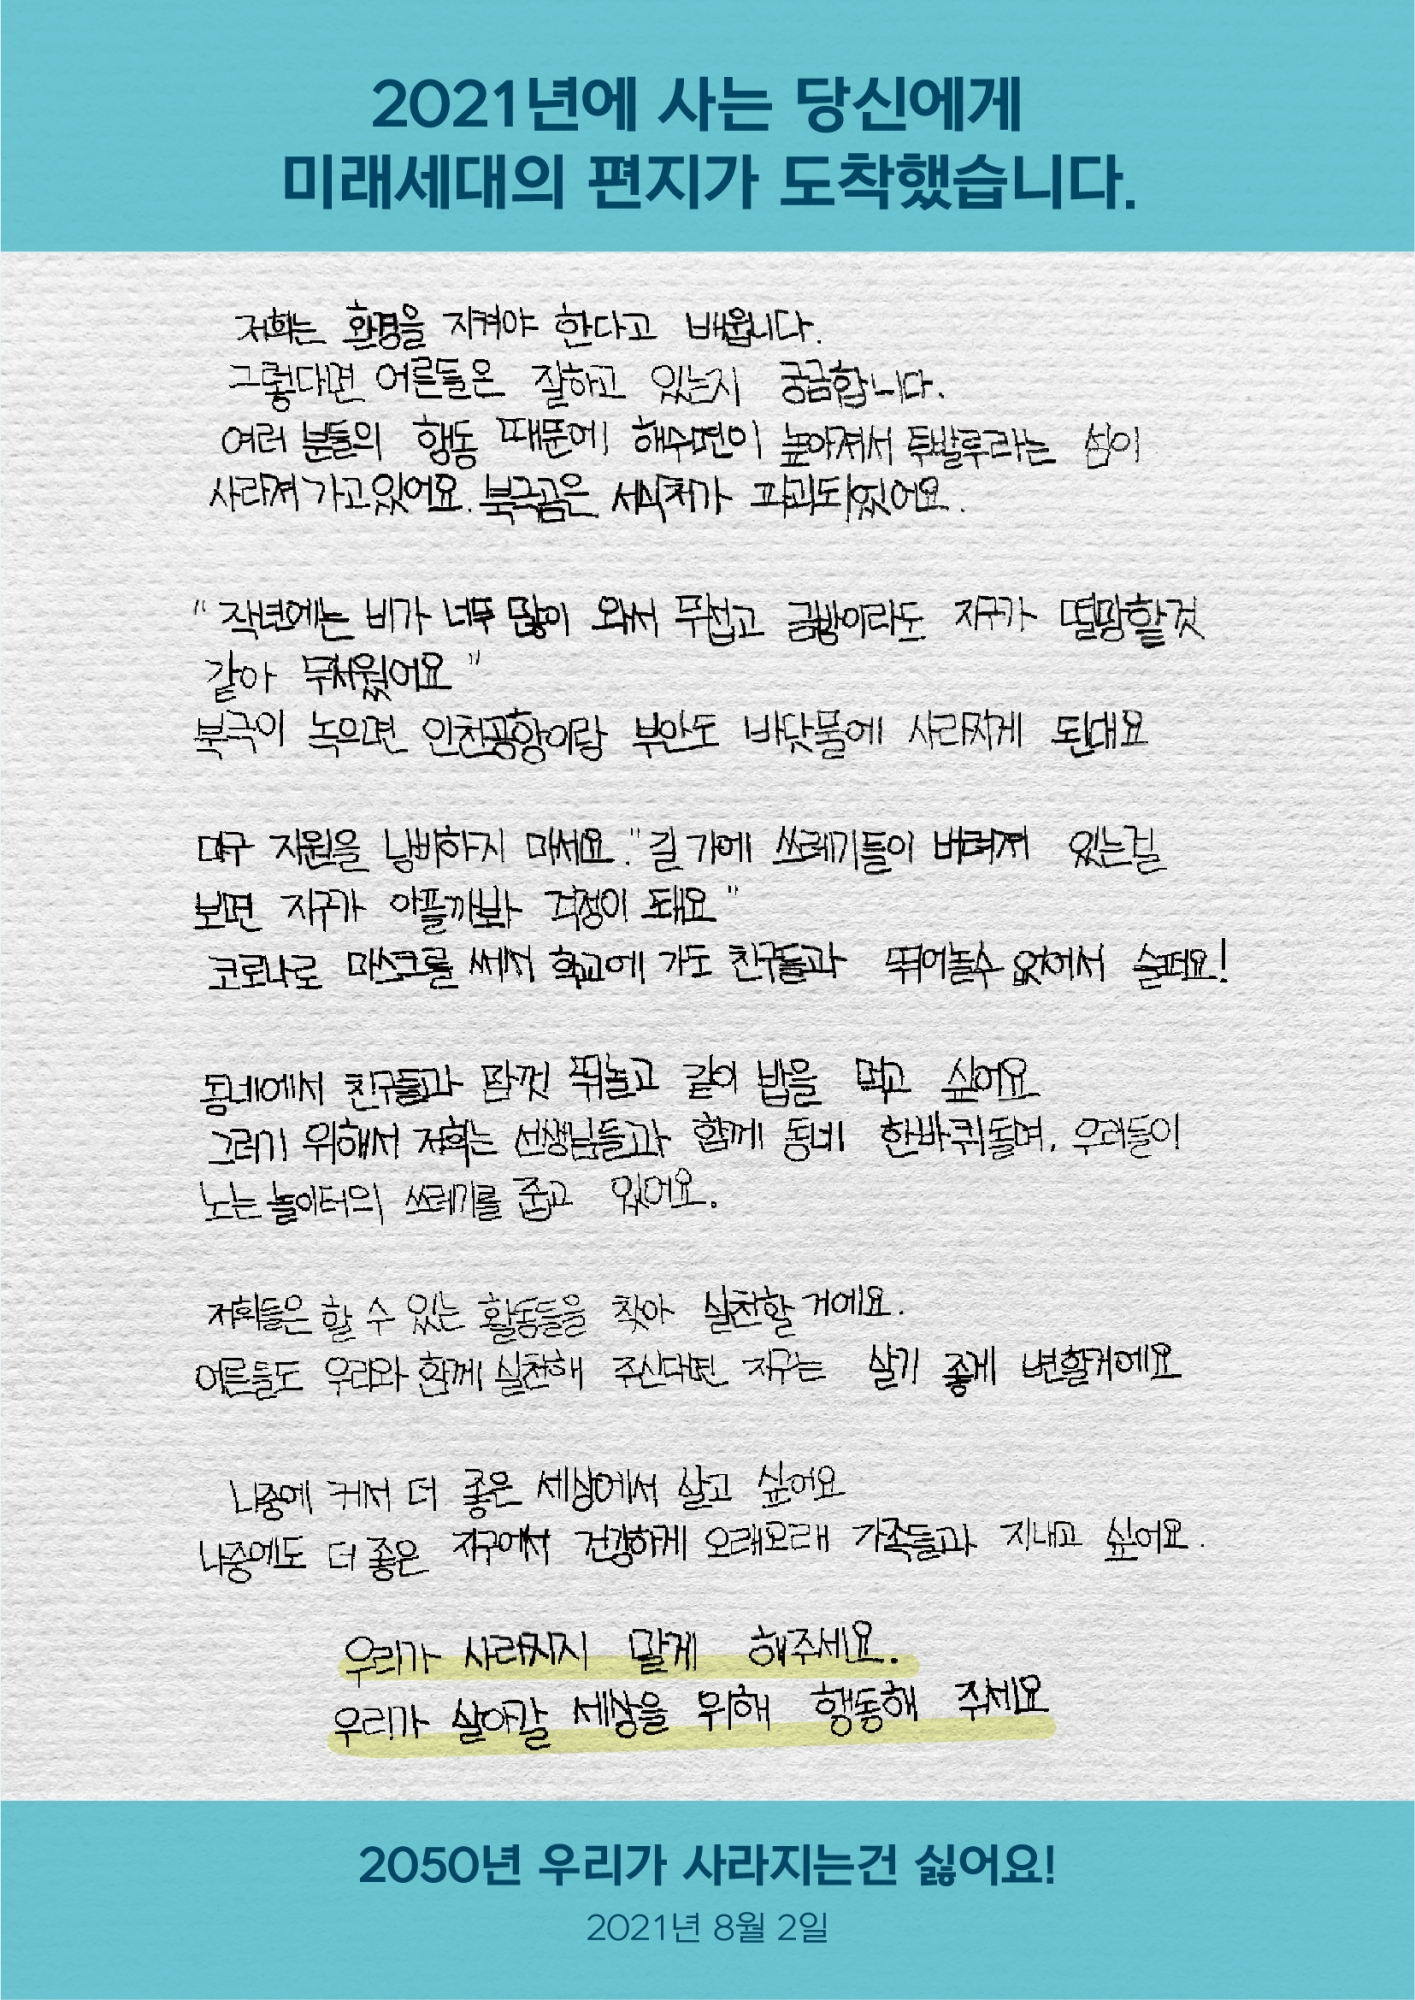 2021년에 사는 당신에게
미래세대의 편지가 도착했습니다.
저희는 환경을 지켜야 한다고 배웁니다.
그렇다면 어른들은 잘하고 있는지 궁금합니다.
여러 분들의 행동 때문에 해수면이 높아져서 투발루라는 섬이
사라져 가고 있어요. 북극곰은 서식처가 파괴되있어요.
"작년에는 비가 너무 많이 와서 무섭고 금방이라도 지구가 멸망할것
같아 무서웠어요"
북극이 녹으면 인천공항이랑 부안도 바닷물에 사라지게 된대요
마구 자원을 낭비하지 마세요. "길 가에 쓰레기들이 버려져 있는걸
보면 지구가 아플까봐 걱정이 돼요"
코로나로 마스크를 쓰서 학교에 가도 친구들과 뛰어놀수 없어서 슬퍼요!
동네에서 친구들과 맘껏 뛰놀고 같이 밥을 먹고 싶어요
그러기 위해서 저희는 선생님들과 함께 동네 한바퀴돌며, 우리들이
노는 놀이터의 쓰레기를 줍고 있어요.
저희들은 할 수 있는 활동들을 찾아 실천할 거에요.
어른들도 우리와 함께 실천해 주신다면 지구는 살기 좋게 변할거에요
나중에 커서 더 좋은 세상에서 살고 싶어요
나중에도 더 좋은 지구에서 건강하게 오래오래 가족들과 지내고 싶어요.
우리가 사라지지 말게 해주세요.
우리가 살아갈 세상을 위해 행동해 주세요
2050년 우리가 사라지는건 싫어요!
2021년 8월 2일